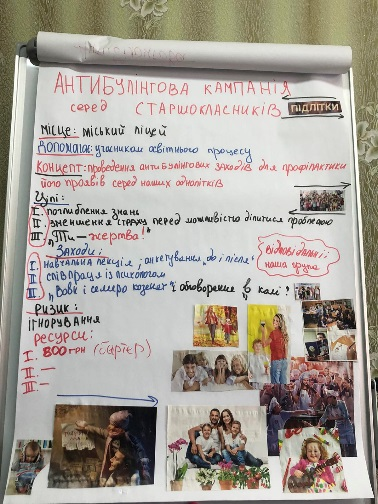 АНТИБУЛІНГОВА КАМПАНІЯ
серед СТАРШОКЛАСНИКІВ
ПІДЛІТКИ
Місце: міський ліцей
Допомагає: учасникам освітнього процесу
Концепт: проведення антибулінгових заходів для профілактики
його проявів серед наших однолітків
Цілі:
I. поглиблення знань
II. зменшення страху перед можливістю ділитися проблемою
III. "Ти – жертва!"
Заходи:
I. навчальна лекція, анкетування „до і після"
II. співпраця із психологом
III. „Вовк і семеро козенят" і обговорення в колі?
Відповідальні:
наша група
Ризик:
ігнорування
Ресурси:
I. 800 грн (бартер)
II. —
III. —